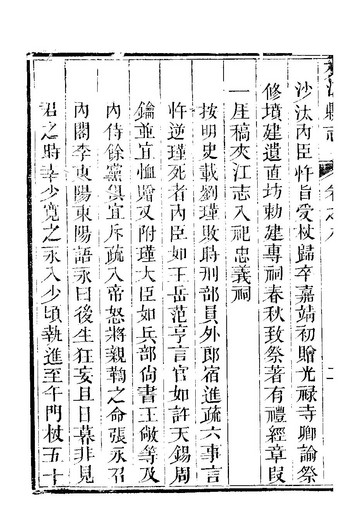 夾江縣志 卷之八 二
沙汰內臣忤旨受杖歸卒嘉靖初贈光祿寺卿諭祭
修墳建遺直坊勅建專祠春秋致祭著有禮經章段
一厓稿夾江志入祀忠義祠
按明史載劉瑾敗時刑部員外郎宿進疏六事言
忤逆瑾死者內臣如王岳范亨言官如許天錫周
鑰並宜恤贈又附瑾大臣如兵部尚書王敞等及
內侍餘黨俱宜斥疏入帝怒將親鞫之命張永召
內閣李東陽東陽語永曰後生狂妄且日暮非見
君之時幸少寬之永入少頃執進至午門杖五十